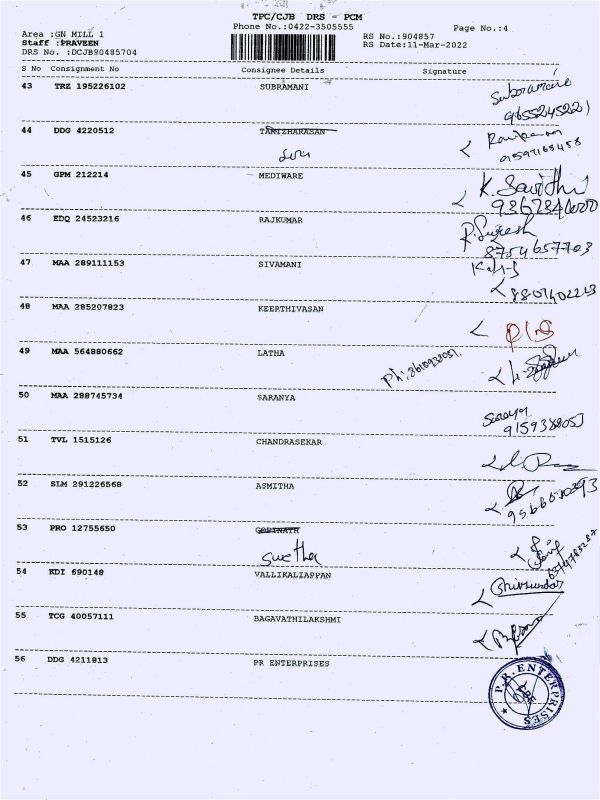 TPC/CJB DRS - PCM
Phone No.:0422-3505555 Page No.:4
Area :GN MILL 1 RS No.:904857
Staff :PRAVEEN RS Date:11-Mar-2022
DRS No. :DCJB90485704
S No Consignment No Consignee Details Signature
43 TRZ 195226102 SUBRAMANI Subramani
9655245221
44 DDG 4220512 TAMIZHARASAN
45 GPM 212214 MEDIWARE K. Savithri
46 EDQ 24523216 RAJKUMAR R. Suresh
8754657703
47 MAA 289111153 SIVAMANI
8807402223
48 MAA 285207823 KEERTHIVASAN
49 MAA 564880662 LATHA
50 MAA 288745734 SARANYA Saranya
51 TVL 1515126 CHANDRASEKAR
52 SLM 291226568 ASMITHA
53 PRO 12755650 GOPINATH
Swetha
54 KDI 690148 VALLIKALIAPPAN Shivsundar
55 TCG 40057111 BAGAVATHILAKSHMI
56 DDG 4211813 PR ENTERPRISES
P.R. ENTERPRISES
CBE